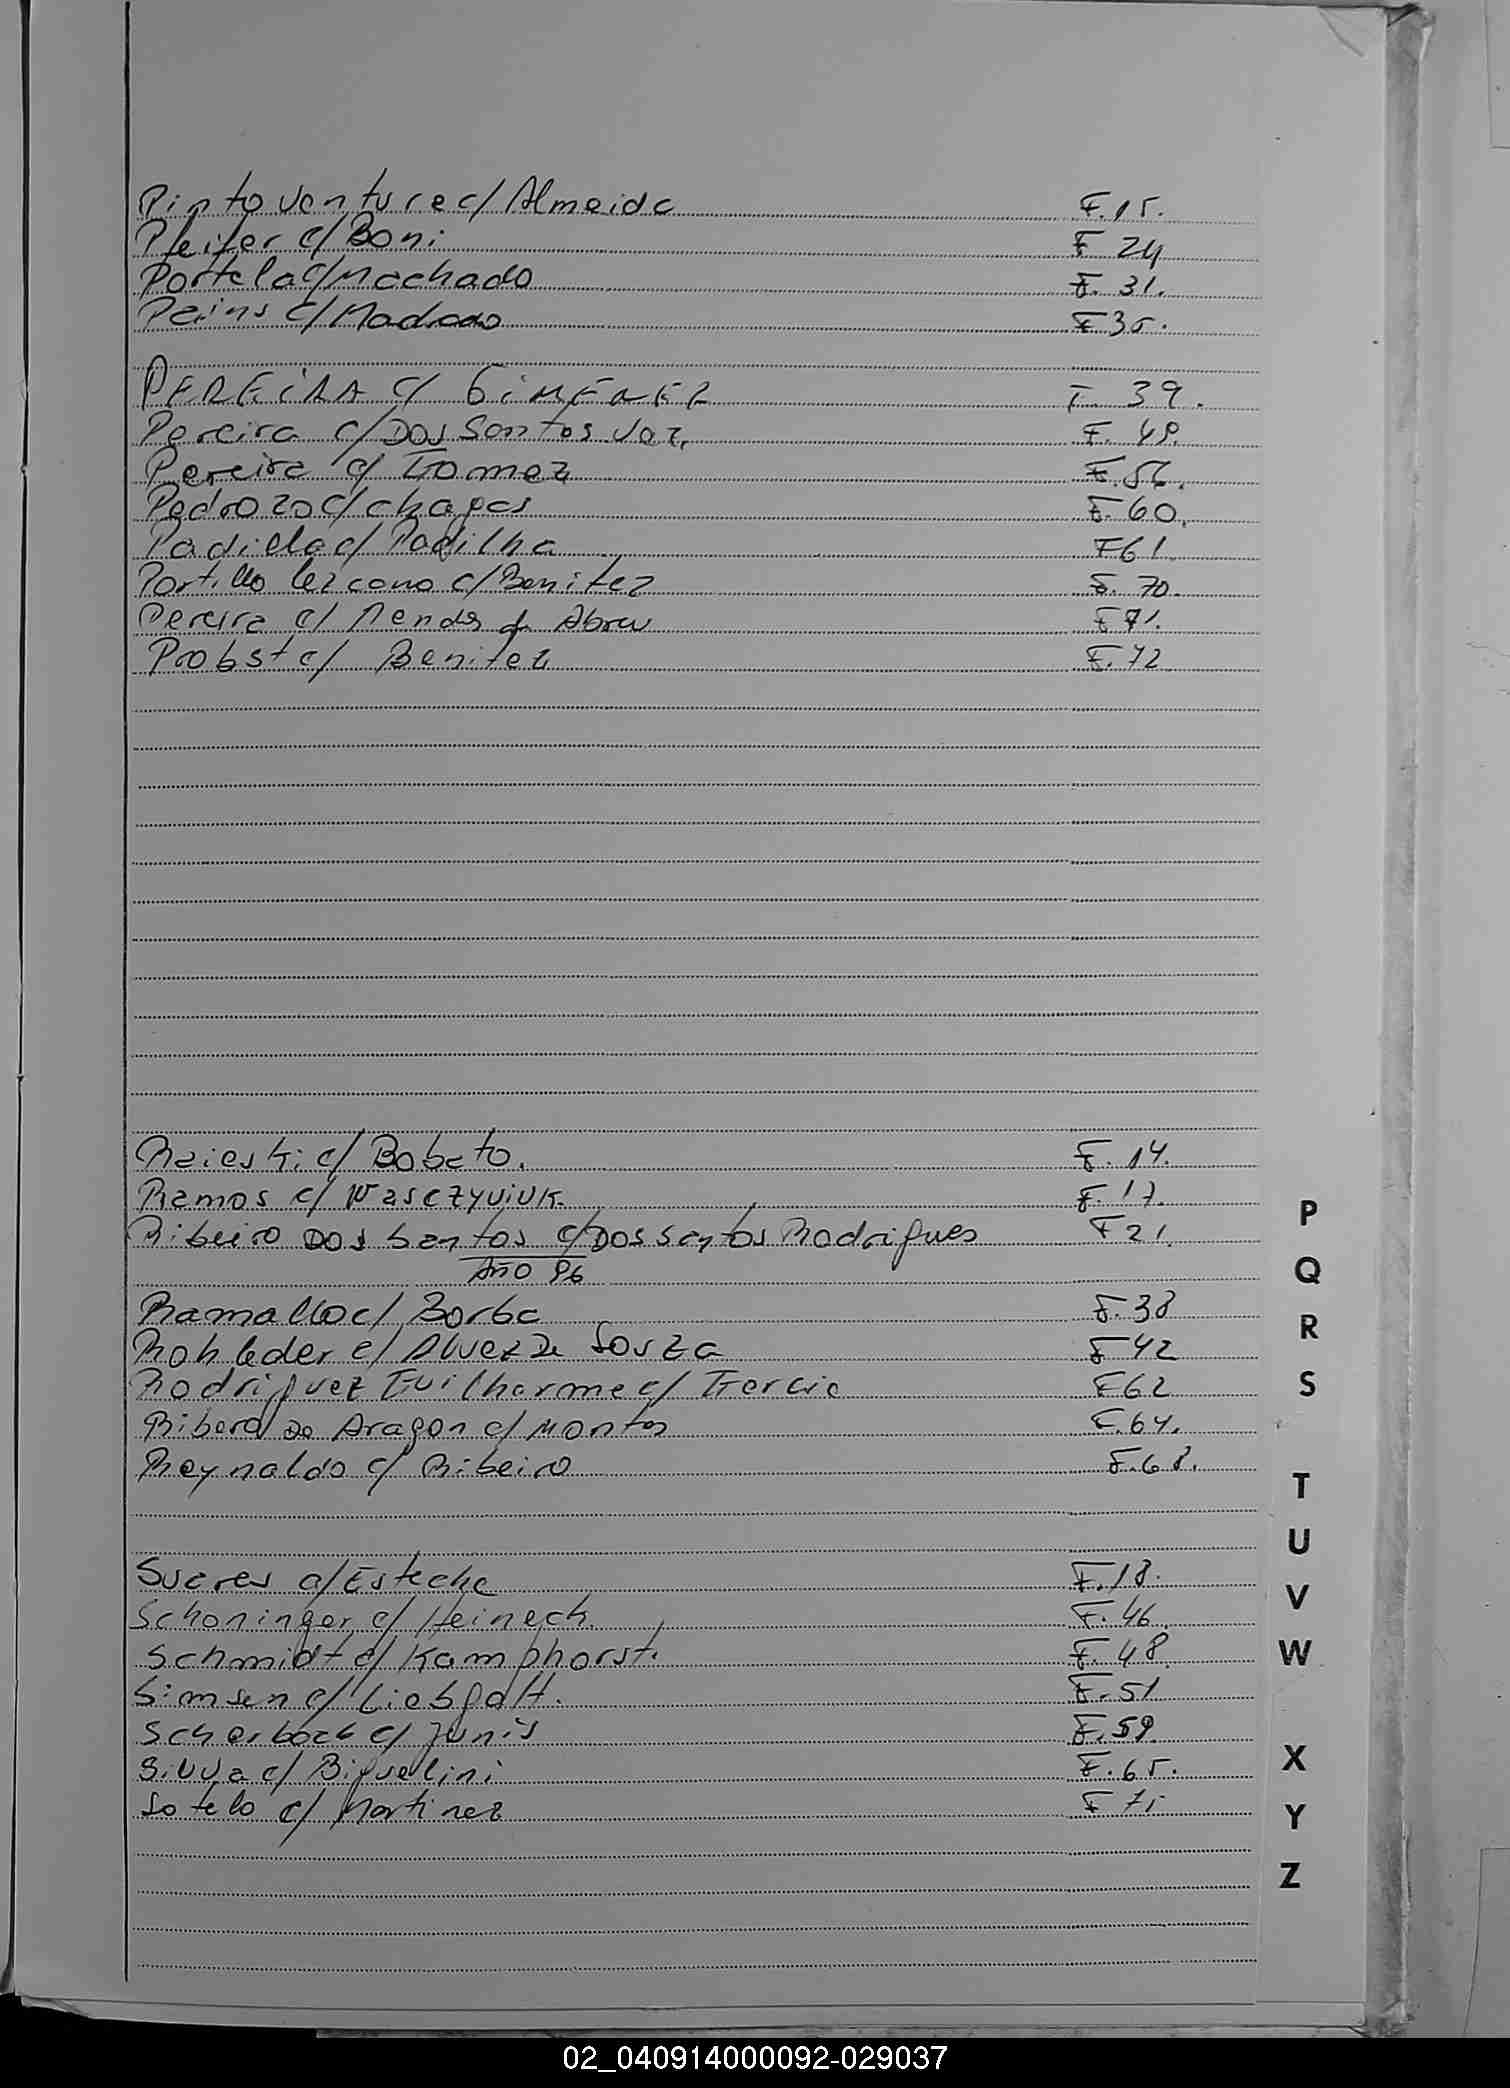 Pinto Venture c/ Almeida F. 15.
Pfeifer c/ Boni F 24
Portela c/ Machado F. 31.
Peins c/ F 35.
PEREIRA c/ GIMENEZ F. 39.
Pereira c/ Dos Santos Vaz F. 49.
Pereira c/ Gomez F. 56.
Pedrozo c/ chagas F. 60.
Padilla c/ Padilha F 61.
Portillo Lezcano c/ Benitez F. 70.
Pereira c/ Mendes de Abreu F 71.
Probst c/ Benitez F. 72
c/ Bobato. F. 14.
Ramos c/ Wasczyviuk F. 17.
Ribeiro Dos Santos c/ Dos Santos Rodrigues F 21.
Año 96
Ramallo c/ Borba F. 38
Rohleder c/ Alvez De Souza F 42
Rodriguez Guilherme c/ Garcia F 62
Ribera de Aragon c/ Montes F. 64.
Reynaldo c/ Ribeiro F. 68.
Suares c/ Esteche F. 18.
Schoninger c/ Heineck. F. 46
Schmidt c/ Kamphorst. F. 48.
Simsen c/ Liebgott. F. 51
Scherbock c/ Junis F. 59.
Silva c/ Biguelini F. 65.
Sotelo c/ Martinez F 75
P
Q
R
S
T
U
V
W
X
Y
Z
02_040914000092-029037